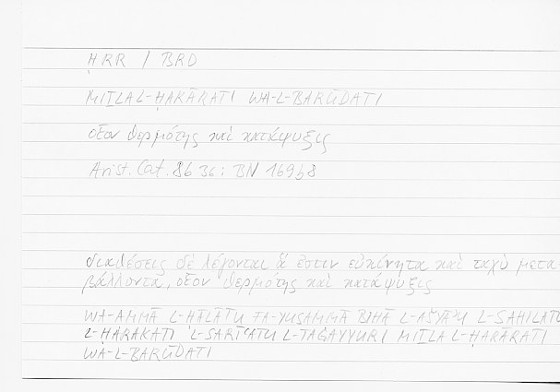 ḤRR / BRD
MIṮLA L-ḤARĀRATI WA-L-BARŪDATI
οἷον θερμότης καὶ κατάψυξις
Arist. Cat. 8b 36: BN 169b8
διαθέσεις δὲ λέγονται ἅ ἐστιν εὐκίνητα καὶ ταχὺ μετα
βάλλοντα, οἷον θερμότης καὶ κατάψυξις
WA-AMMĀ L-ḤĀLĀTU FA-YUSAMMĀ BIHĀ L-AŠYĀʾU L-SAHILATU
L-ḤARAKATI L-SARĪʿATU L-TAĠAYYURI MIṮLA L-ḤARĀRATI
WA-L-BARŪDATI